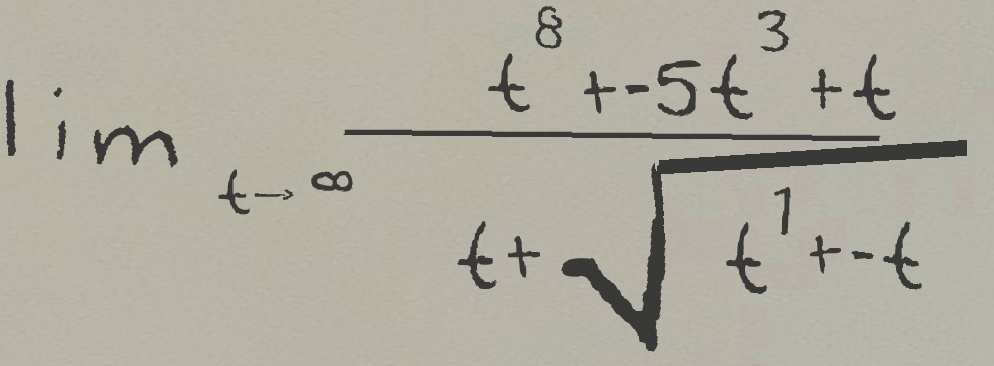 \lim_{t \to \infty} \frac{t^8 + -5t^3 + t}{t + \sqrt{t^1 + -t}}